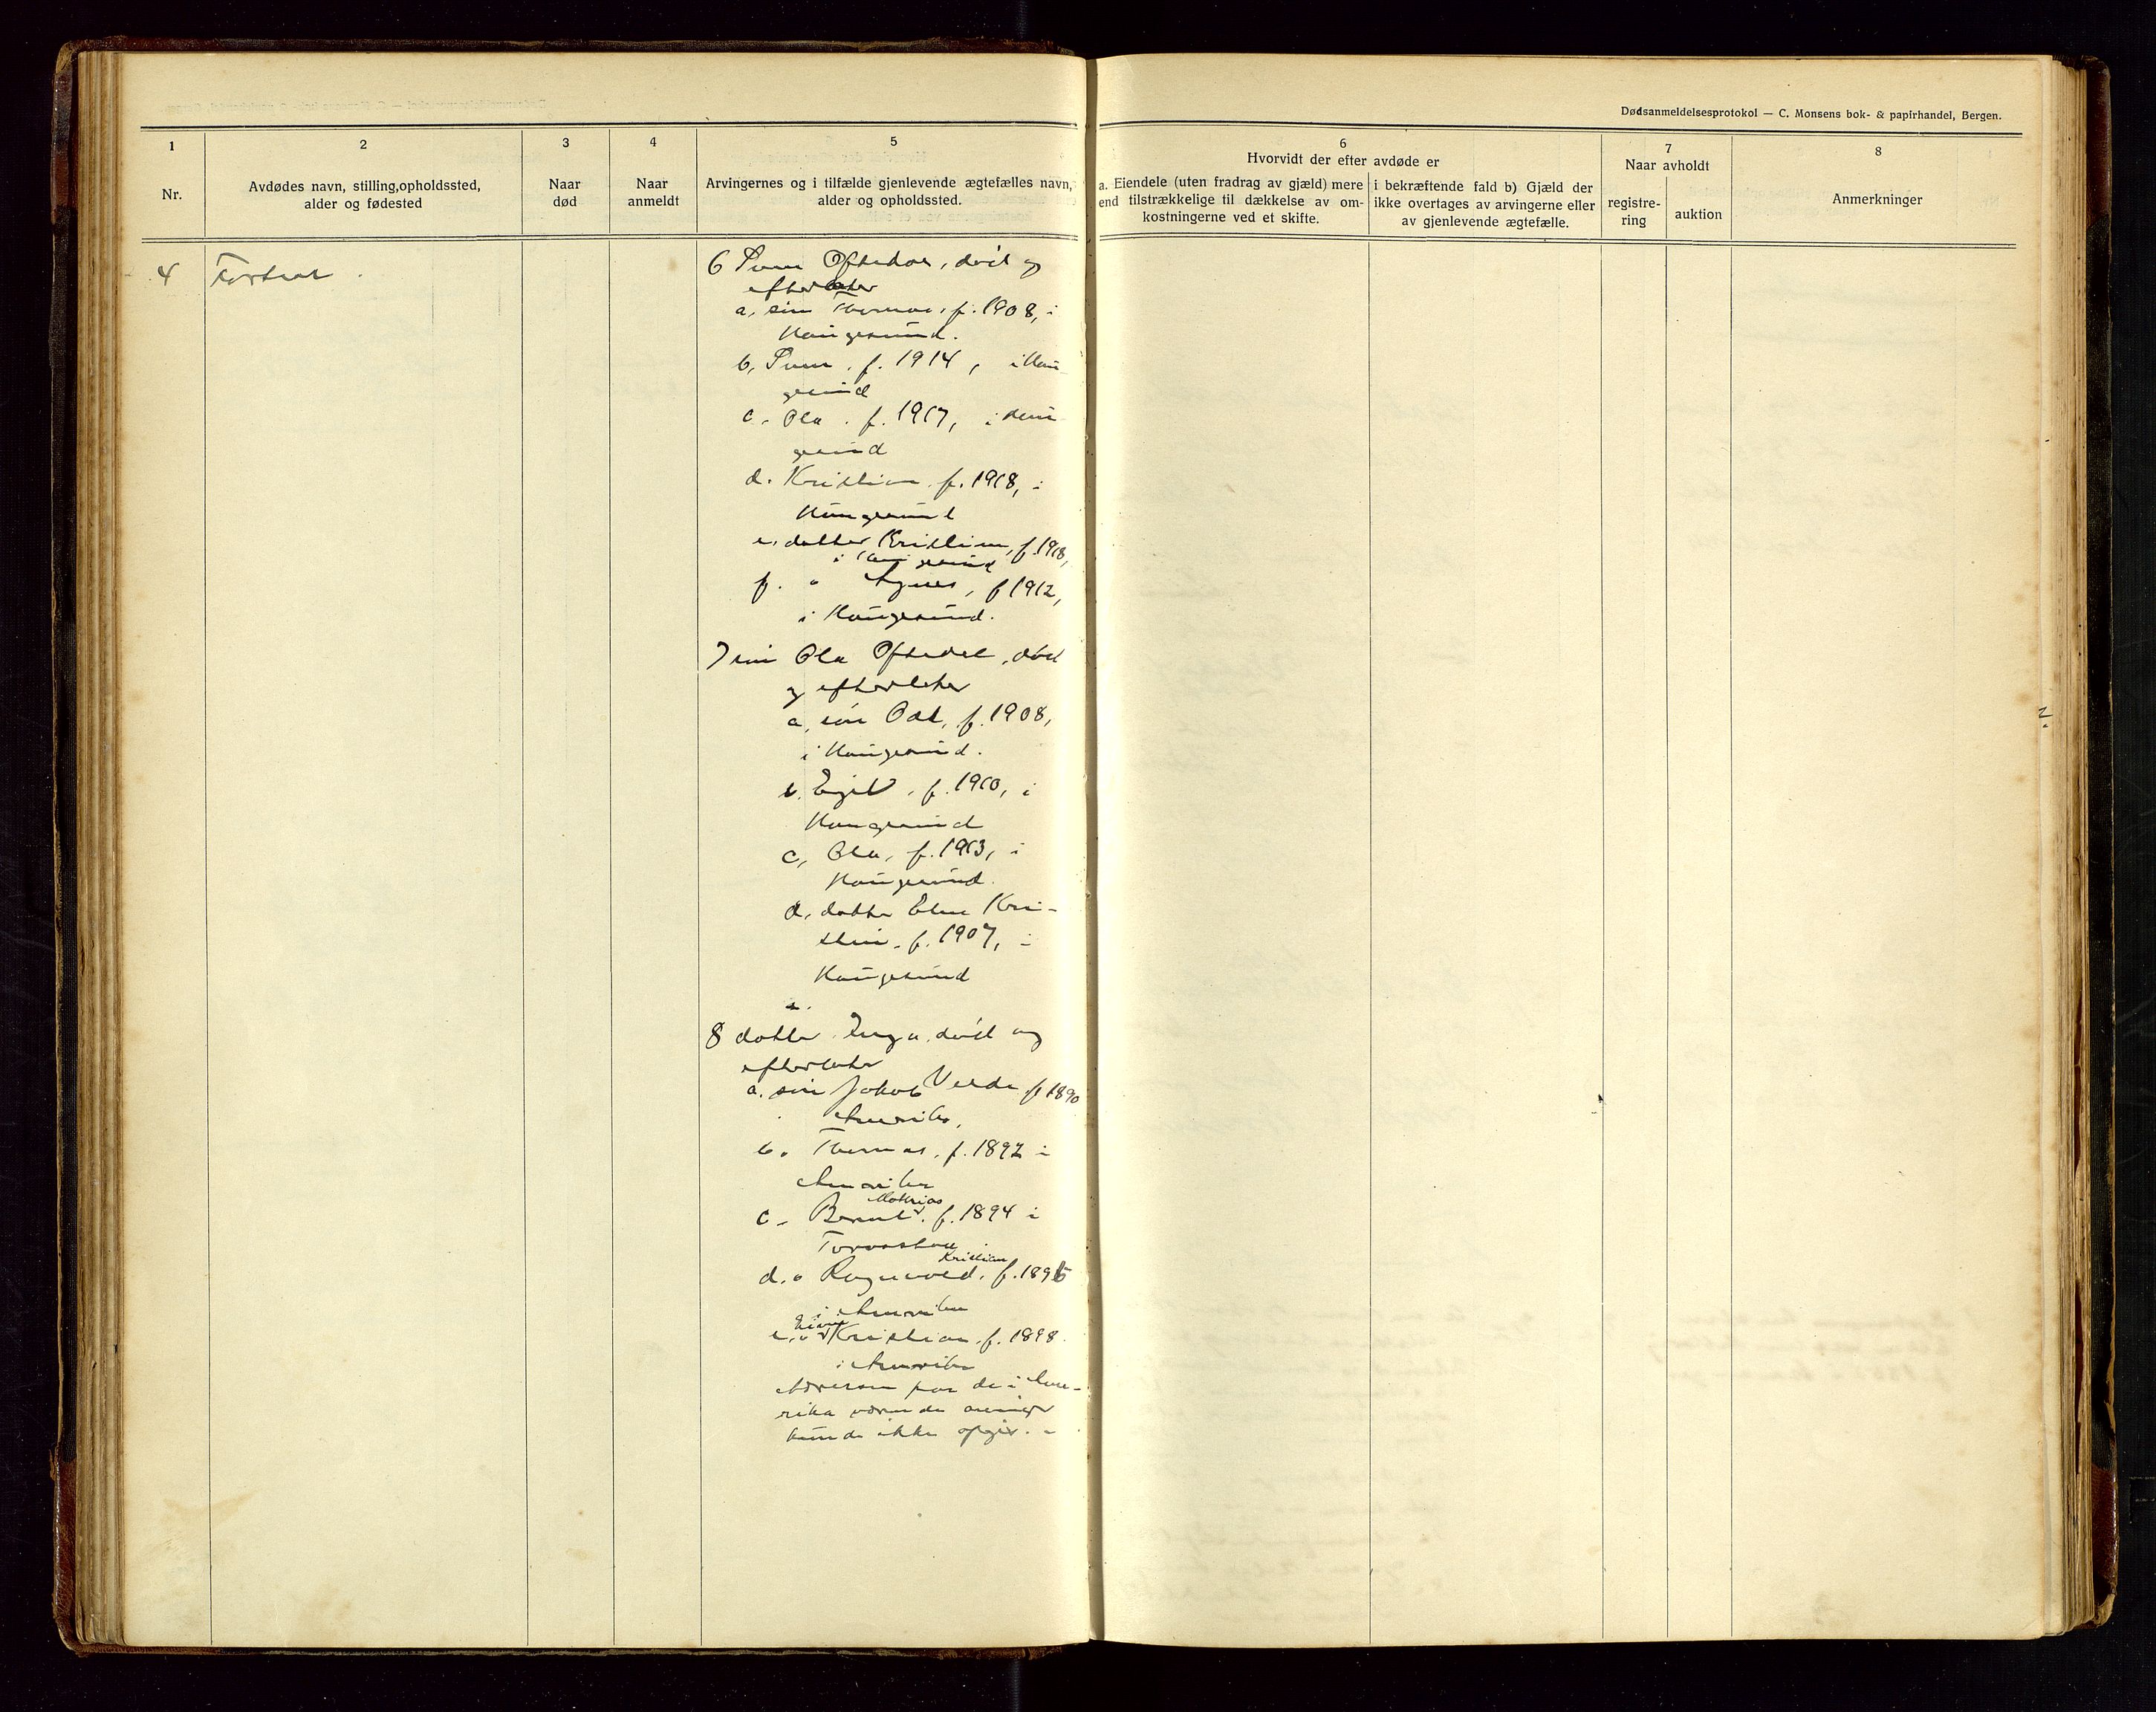 Dødsanmeldelsesprotokol — C. Monsens bok- & papirhandel, Bergen.
1
Nr.
2
Avdødes navn, stilling,opholdssted,
alder og fødested
3
Naar
død
4
Naar
anmeldt
5
Arvingernes og i tilfælde gjenlevende ægtefælles navn,
alder og opholdssted.
6
Hvorvidt der efter avdøde er
a. Eiendele (uten fradrag av gjæld) mere
end tilstrækkelige til dækkelse av om-
kostningerne ved et skifte.
i bekræftende fald b) Gjæld der
ikke overtages av arvingerne eller
av gjenlevende ægtefælle.
7
Naar avholdt
registre-
ring
auktion
8
Anmerkninger
4
Fortsat
6 Oftedal, død og
efterlater
a, sön Thomas, f. 1908, i
Haugesund.
b, f. 1914, i Hau
gesund
c. Ola . f. 1917, i Hau
gesund
d. Kristian f. 1918, i
Haugesund
e, datter Kristine, f. 1918,
i Haugesund
f. " Agnes, f 1912,
i Haugesund.
7 sön Ola Oftedal, död
og efterlater
a, sön Odd, f. 1908,
i Haugesund.
b. Egil, f. 1910, i
Haugesund
c, Ola, f. 1913, i
Haugesund.
d, datter Kri-
stin, f. 1907, i
Haugesund
e.
8 datter Inga, död og
efterlater
a. sön Jakob f 1890
Amerika,
b. Thomas, f. 1892 i
Amerika
c. Mathias f. 1894 i
Torvastad
d. " Ragnvald Kristian, f. 1896
i Amerika
e. " Kristian, f. 1898
i Amerika
Adressen paa de i Ame-
rika værende arvinger
kunde ikke opgis. -